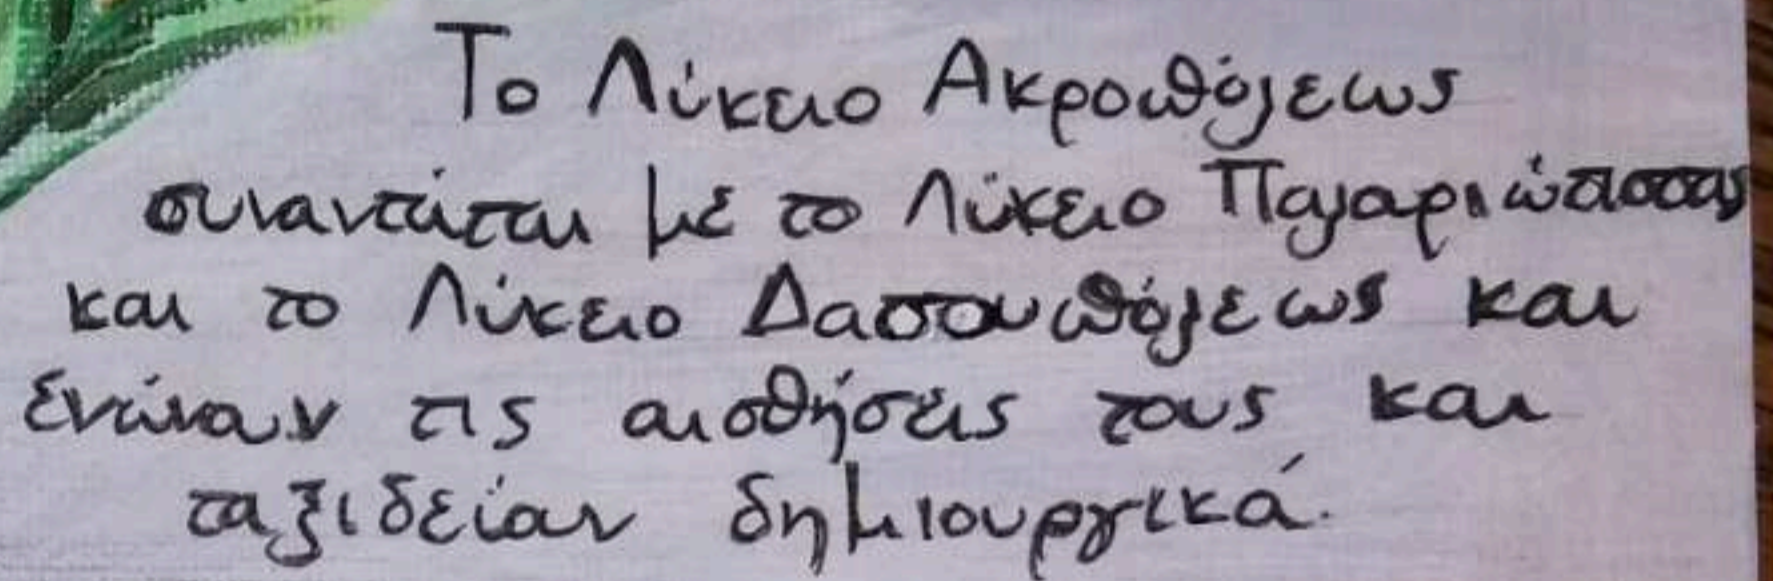 Το Λύκειο Ακροπόλεως
συναντάται με το Λύκειο Παλαριώτισσας
και το Λύκειο Δασουπόλεως και
ενώναν τις αισθήσεις τους και
ταξιδείαν δημιουργικά.